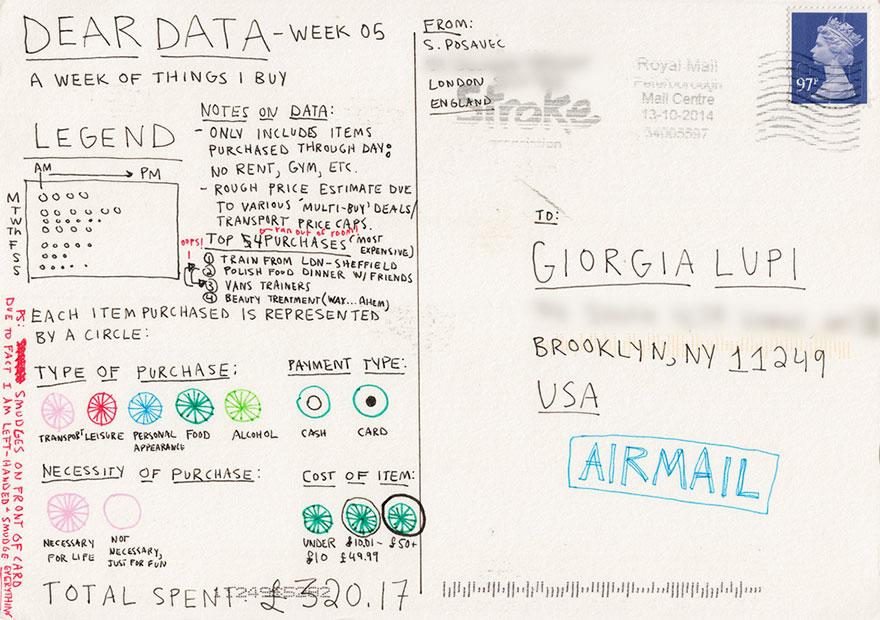 DEAR DATA - WEEK 05
A WEEK OF THINGS I BUY
LEGEND
AM
PM
M
T
W
Th
F
S
S
NOTES ON DATA:
- ONLY INCLUDES ITEMS
PURCHASED THROUGH DAY:
NO RENT, GYM, ETC.
- ROUGH PRICE ESTIMATE DUE
TO VARIOUS 'MULTI-BUY' DEALS/
TRANSPORT PRICE CAPS.
ran out of room!
OOPS!
TOP 4 PURCHASES (MOST
EXPENSIVE)
1 TRAIN FROM LDN-SHEFFIELD
2 POLISH FOOD DINNER W/ FRIENDS
3 VANS TRAINERS
4 BEAUTY TREATMENT (WAX...AHEM)
EACH ITEM PURCHASED IS REPRESENTED
BY A CIRCLE:
TYPE OF PURCHASE:
TRANSPORT
LEISURE
PERSONAL
APPEARANCE
FOOD
ALCOHOL
PAYMENT TYPE:
CASH
CARD
NECESSITY OF PURCHASE:
NECESSARY
FOR LIFE
NOT
NECESSARY,
JUST FOR FUN
COST OF ITEM:
UNDER
£10
£10.01-
£49.99
£50+
TOTAL SPENT: £320.17
PS: SMUDGES ON FRONT OF CARD
DUE TO FACT I AM LEFT-HANDED + SMUDGE EVERYTHING
FROM:
S. POSAVEC
LONDON
ENGLAND
Stroke
Royal Mail
Peterborough
Mail Centre
13-10-2014
34005597
97P
TO:
GIORGIA LUPI
BROOKLYN, NY 11249
USA
AIRMAIL